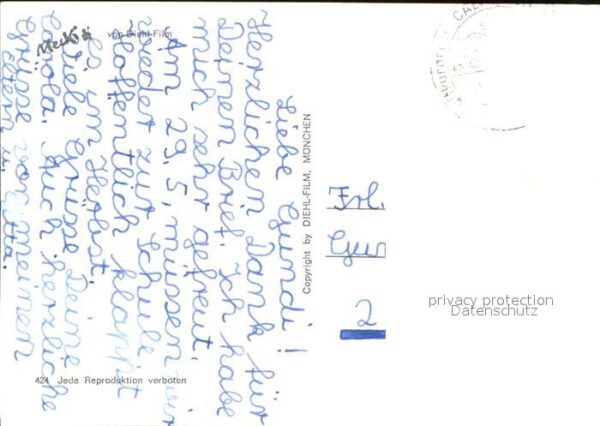 Mecki
von Diehl-Film
Liebe Gundi!
Herzlichen Dank für
Deinen Brief. Ich habe
mich sehr gefreut.
Am 29.5, müssen wir
wieder zur Schule
Hoffentlich klappt
es im Herbst.
Viele Grüsse Deine
Carola. Auch herzliche
Grüsse von meinen
Eltern u.
424 Jede Reproduktion verboten
Copyright by DIEHL-FILM, MÜNCHEN
Frl.
2
privacy protection
Datenschutz